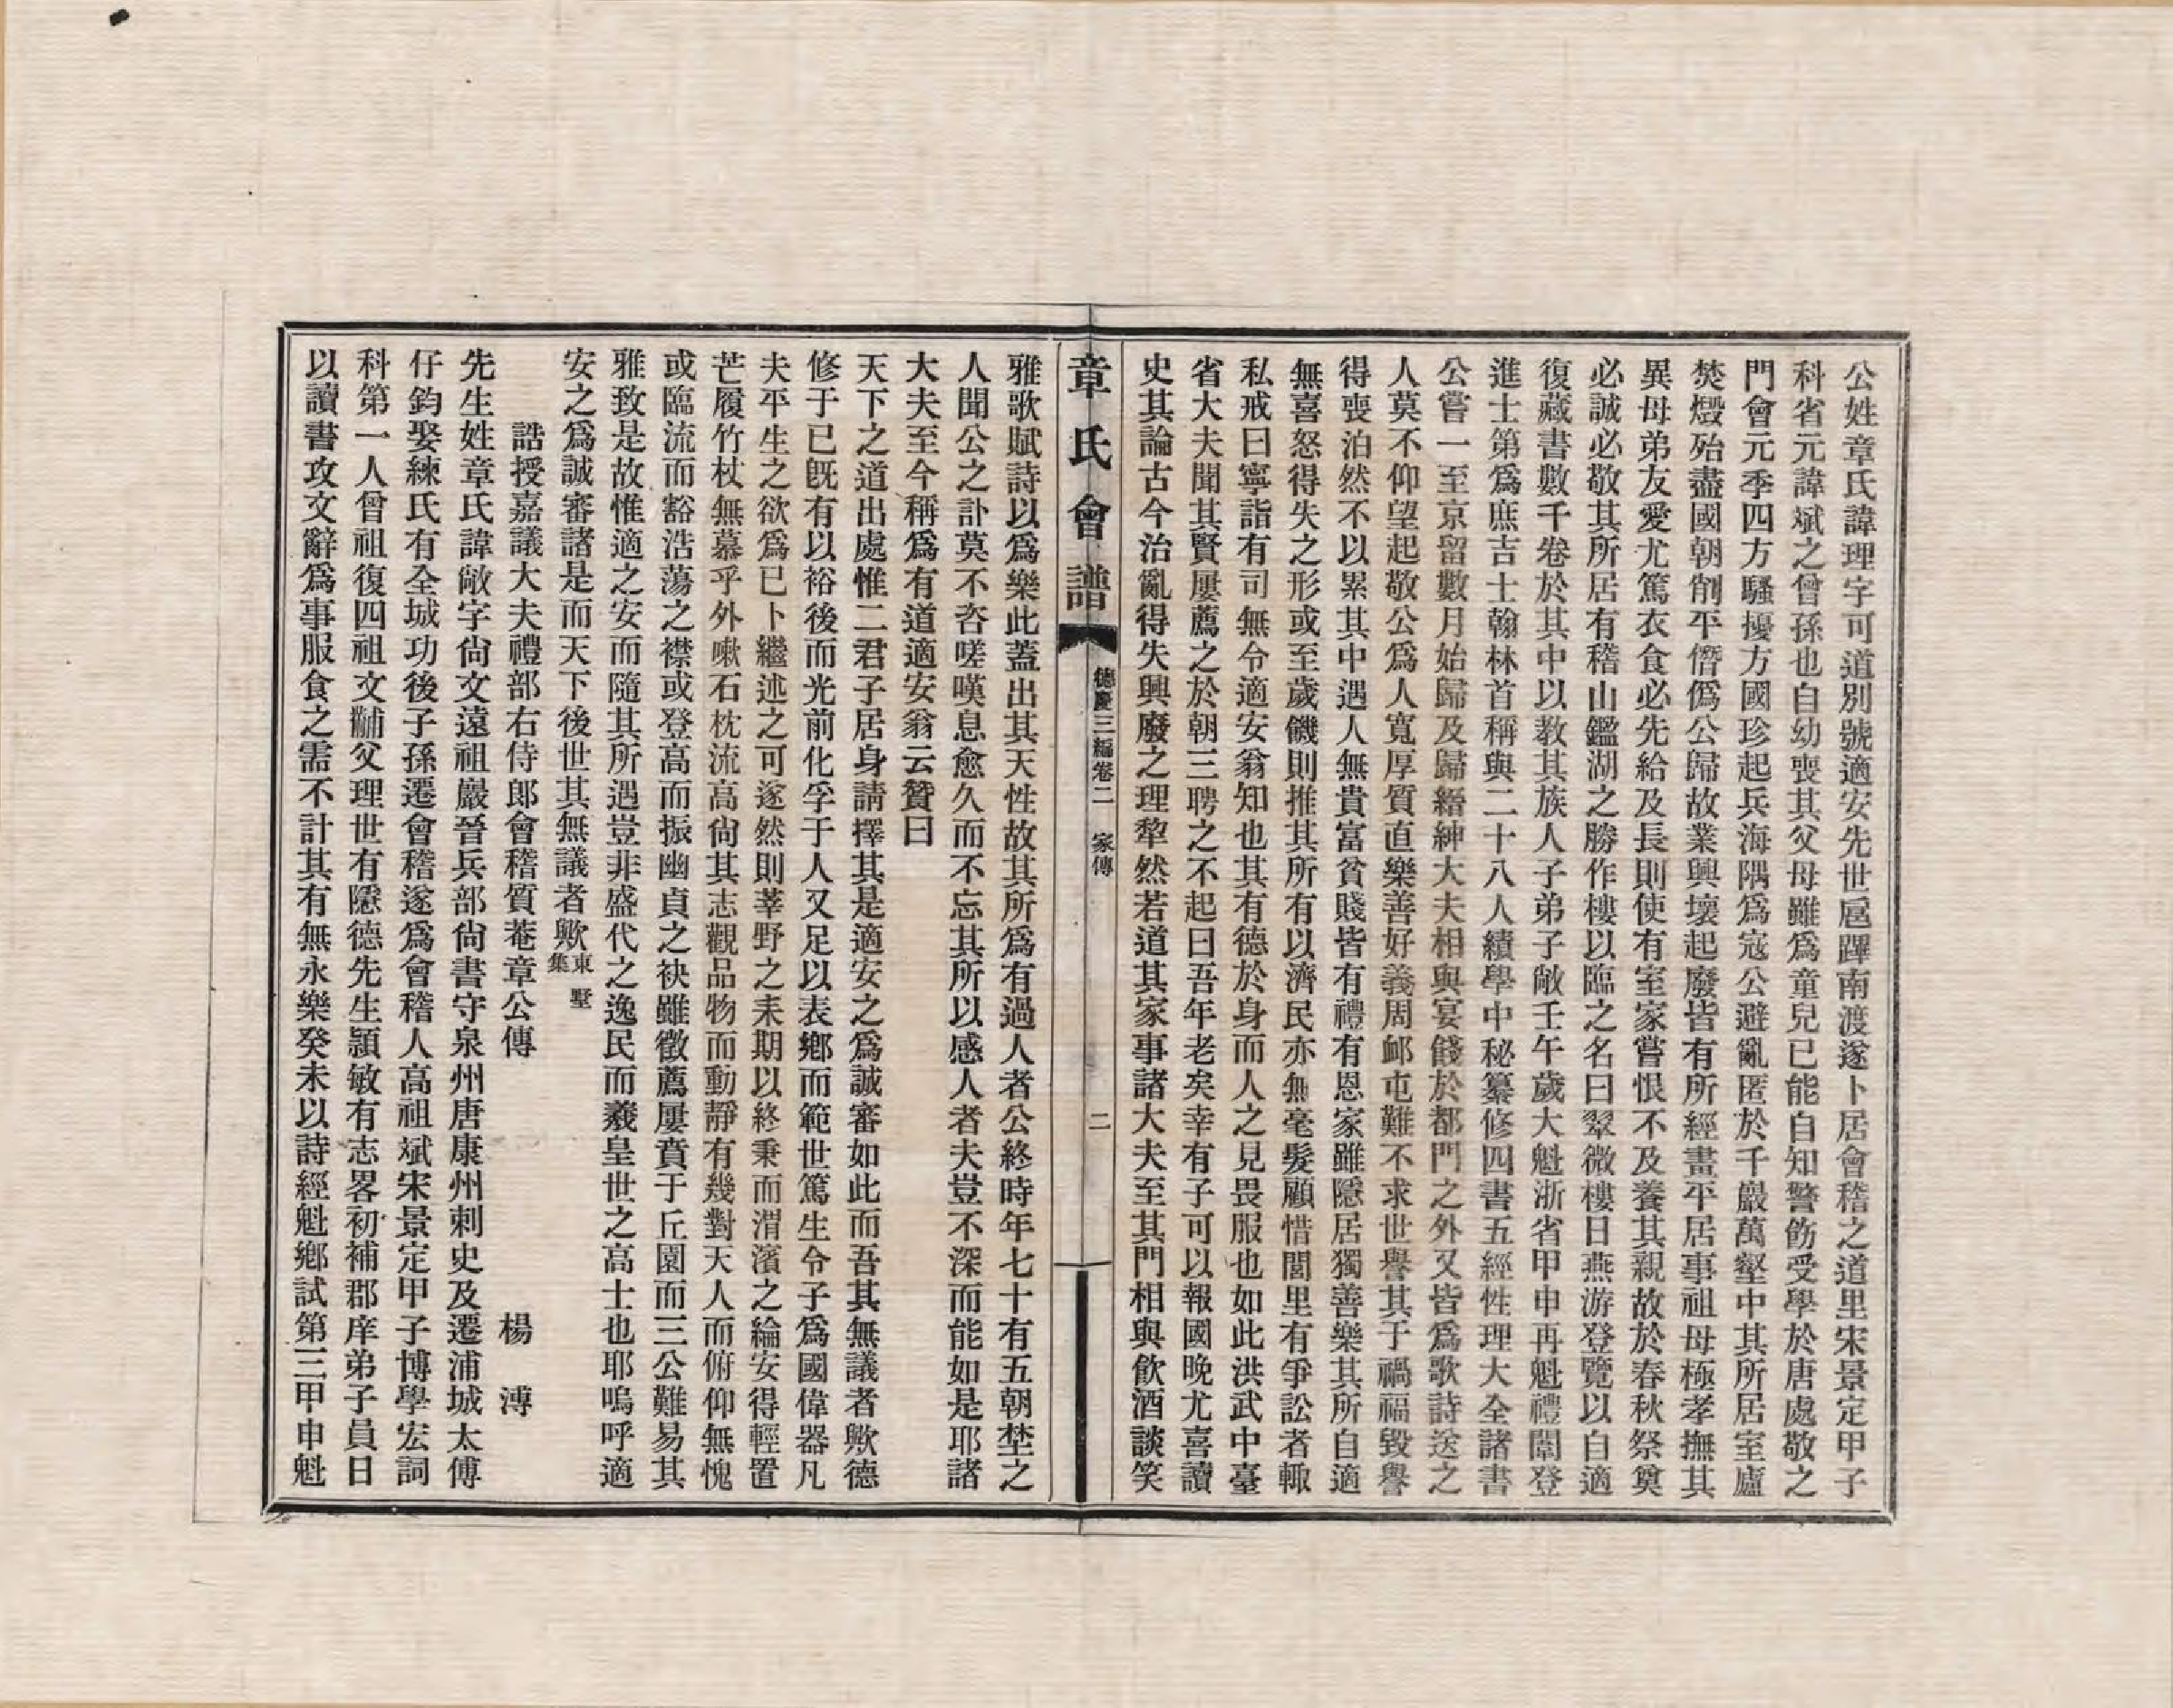 公姓章氏諱理字可道別號適安先世扈蹕南渡遂卜居會稽之道里宋景定甲子
科省元諱斌之曾孫也自幼喪其父母雖爲童兒已能自知警飭受學於唐處敬之
門會元季四方騷擾方國珍起兵海隅爲寇公避亂匿於千巖萬壑中其所居室廬
焚燬殆盡國朝削平僭僞公歸故業興壞起廢皆有所經畫平居事祖母極孝撫其
異母弟友愛尤篤衣食必先給及長則使有室家嘗恨不及養其親故於春秋祭奠
必誠必敬其所居有稽山鑑湖之勝作樓以臨之名曰翠微樓日燕游登覽以自適
復藏書數千卷於其中以教其族人子弟子敞壬午歲大魁浙省甲申再魁禮闈登
進士第爲庶吉士翰林首稱與二十八人續學中秘纂修四書五經性理大全諸書
公嘗一至京留數月始歸及歸縉紳大夫相與宴餞於都門之外又皆爲歌詩送之
人莫不仰望起敬公爲人寬厚質直樂善好義周邮屯難不求世譽其于禍福毀譽
得喪泊然不以累其中遇人無貴富貧賤皆有禮有恩家雖隱居獨善樂其所自適
無喜怒得失之形或至歲饑則推其所有以濟民亦無毫髮顧惜閭里有爭訟者輙
私戒曰寧詣有司無令適安翁知也其有德於身而人之見畏服也如此洪武中臺
省大夫聞其賢屢薦之於朝三聘之不起曰吾年老矣幸有子可以報國晚尤喜讀
史其論古今治亂得失興廢之理犂然若道其家事諸大夫至其門相與飲酒談笑
章氏會譜
德慶三編卷二
家傳
二
雅歌賦詩以爲樂此蓋出其天性故其所爲有過人者公終時年七十有五朝埜之
人聞公之訃莫不咨嗟嘆息愈久而不忘其所以感人者夫豈不深而能如是耶諸
大夫至今稱爲有道適安翁云贊曰
天下之道出處惟二君子居身請擇其是適安之爲誠審如此而吾其無議者歟德
修于已旣有以裕後而光前化孚于人又足以表鄉而範世篤生令子爲國偉器凡
夫平生之欲爲已卜繼述之可遂然則莘野之耒期以終秉而渭濱之綸安得輕置
芒履竹杖無慕乎外嗽石枕流高尙其志觀品物而動靜有幾對天人而俯仰無愧
或臨流而豁浩蕩之襟或登高而振幽貞之袂雖徵薦屢賁于丘園而三公難易其
雅致是故惟適之安而隨其所遇豈非盛代之逸民而羲皇世之高士也耶嗚呼適
安之爲誠審諸是而天下後世其無議者歟東墅集
誥授嘉議大夫禮部右侍郎會稽質菴章公傳　楊溥
先生姓章氏諱敞字尙文遠祖嚴晉兵部尙書守泉州唐康州刺史及遷浦城太傅
仔鈞娶練氏有全城功後子孫遷會稽遂爲會稽人高祖斌宋景定甲子博學宏詞
科第一人曾祖復四祖文黼父理世有隱德先生頴敏有志畧初補郡庠弟子員日
以讀書攻文辭爲事服食之需不計其有無永樂癸未以詩經魁鄉試第三甲申魁